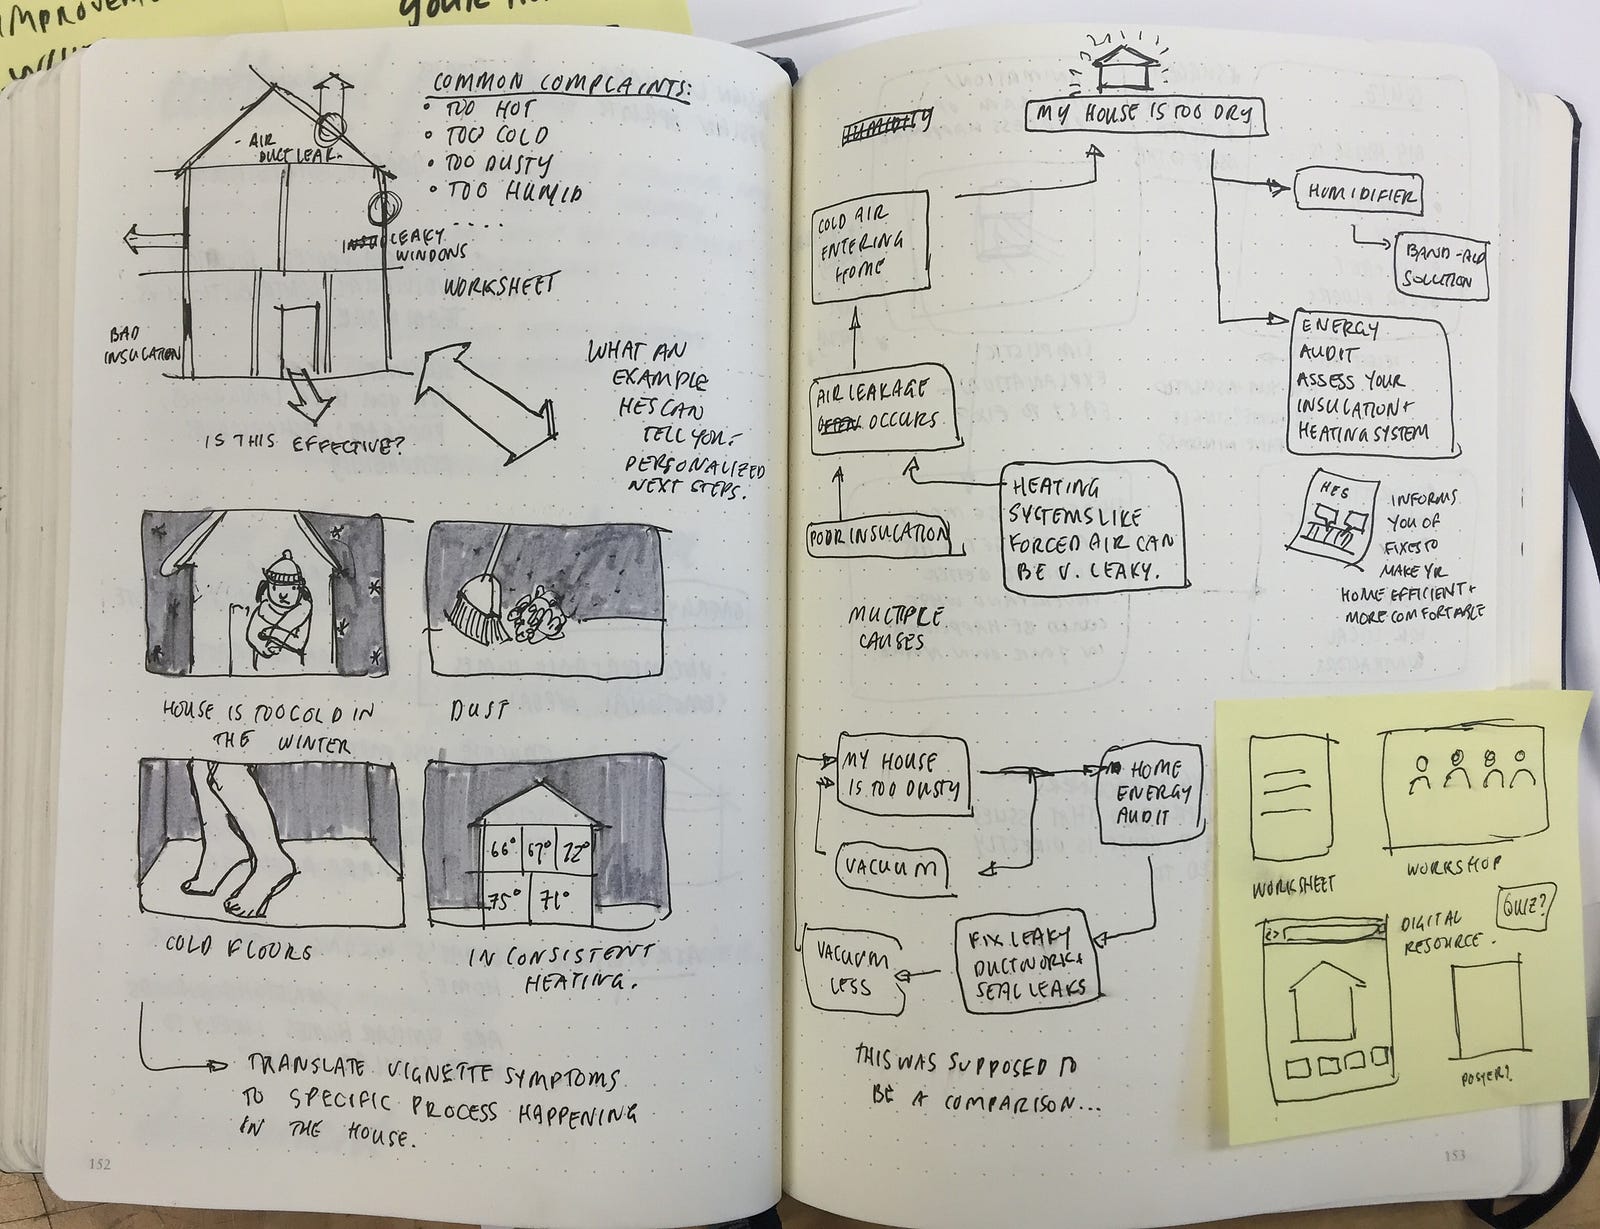 YOUR
COMMON COMPLAINTS:
• TOO HOT
• TOO COLD
• TOO DUSTY
• TOO HUMID
.....
- AIR
DUCT LEAK.
LEAKY
WINDOWS
WORKSHEET
BAD
INSULATION
IS THIS EFFECTIVE?
WHAT AN
EXAMPLE
HES CAN
TELL YOU -
PERSONALIZED
NEXT STEPS.
HOUSE IS TOO COLD IN
THE WINTER
DUST
66° 67° 72°
75° 71°
COLD FLOORS
INCONSISTENT
HEATING.
TRANSLATE VIGNETTE SYMPTOMS
TO SPECIFIC PROCESS HAPPENING
IN THE HOUSE.
152
HUMIDITY
MY HOUSE IS TOO DRY
COLD AIR
ENTERING
HOME
HUMIDIFIER
BAND-AID
SOLUTION
ENERGY
AUDIT
ASSESS YOUR
INSULATION +
HEATING SYSTEM
AIR LEAKAGE
OFTEN OCCURS.
POOR INSULATION
HEATING
SYSTEMS LIKE
FORCED AIR CAN
BE V. LEAKY.
HES
INFORMS
YOU OF
FIXES TO
MAKE YR
HOME EFFICIENT +
MORE COMFORTABLE
MULTIPLE
CAUSES
MY HOUSE
IS TOO DUSTY
HOME
ENERGY
AUDIT
VACUUM
VACUUM
LESS
FIX LEAKY
DUCTWORK +
SEAL LEAKS
THIS WAS SUPPOSED TO
BE A COMPARISON...
WORKSHEET
WORKSHOP
QUIZ?
DIGITAL
RESOURCE.
POSTER?
153